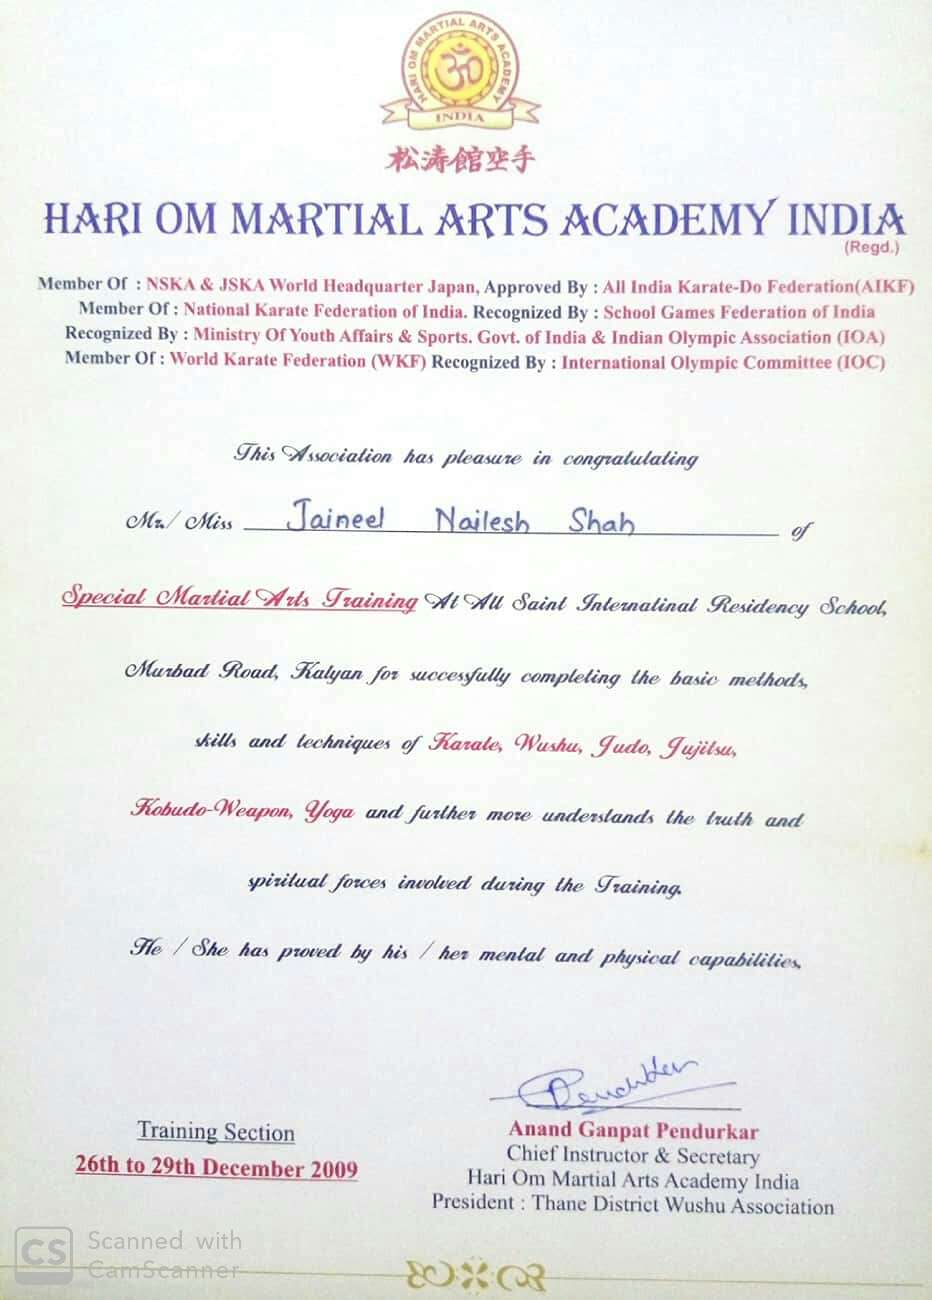 HARI OM MARTIAL ARTS ACADEMY
INDIA
松涛館空手
HARI OM MARTIAL ARTS ACADEMY INDIA
(Regd.)
Member Of : NSKA & JSKA World Headquarter Japan, Approved By : All India Karate-Do Federation(AIKF)
Member Of : National Karate Federation of India. Recognized By : School Games Federation of India
Recognized By : Ministry Of Youth Affairs & Sports. Govt. of India & Indian Olympic Association (IOA)
Member Of : World Karate Federation (WKF) Recognized By : International Olympic Committee (IOC)
This Association has pleasure in congratulating
Mr./ Miss Jaineel Nailesh Shah of
Special Martial Arts Training At All Saint Internatinal Residency School,
Murbad Road, Kalyan for successfully completing the basic methods,
skills and techniques of Karate, Wushu, Judo, Jujitsu,
Kobudo-Weapon, Yoga and further more understands the truth and
spiritual forces involved during the Training.
He / She has proved by his / her mental and physical capabilities.
Pendurkar
Training Section
26th to 29th December 2009
Anand Ganpat Pendurkar
Chief Instructor & Secretary
Hari Om Martial Arts Academy India
President : Thane District Wushu Association
CS Scanned with
CamScanner